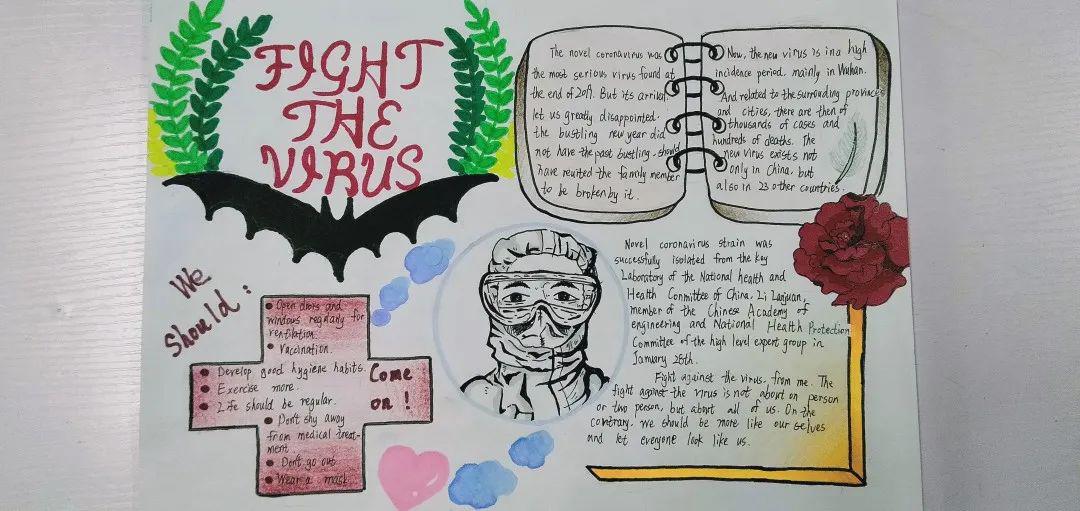 FIGHT
THE
VIRUS
The novel coronavirus was
the most serious virus found at
the end of 2019. But its arrival
let us greatly disappointed.
the bustling new year did
not have the past bustling. should
have reuited the family member
to be broken by it.
Now, the new virus is in a high
incidence period. mainly in Wuhan.
And related to the surrounding provinces
and cities, there are then of
thousands of cases and
hundreds of deaths. The
new virus exists not
only in China, but
also in 23 other countries.
We
Should:
• Open doors and
windows regularly for
ventilation.
• Vaccination.
• Develop good hygiene habits.
• Exercise more.
• Life should be regular.
• Don't shy away
from medical treat-
ment
• Don't go out
• Wear a mask
Come
on!
Novel coronavirus strain was
successfully isolated from the key
Laboratory of the National health and
Health Committee of China. Li Lanjuan,
member of the Chinese Academy of
engineering and National Health Protection
Committee of the high level expert group in
January 26th.
Fight against the virus, from me. The
fight against the virus is not about on person
or two person, but about all of us. On the
contrary. we should be more like our selves
and let everyone look like us.